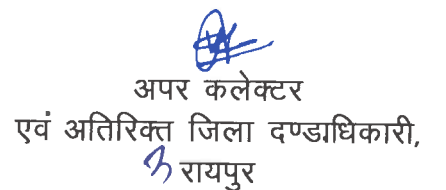 अपर कलेक्टर
एवं अतिरिक्त जिला दण्डाधिकारी,
रायपुर